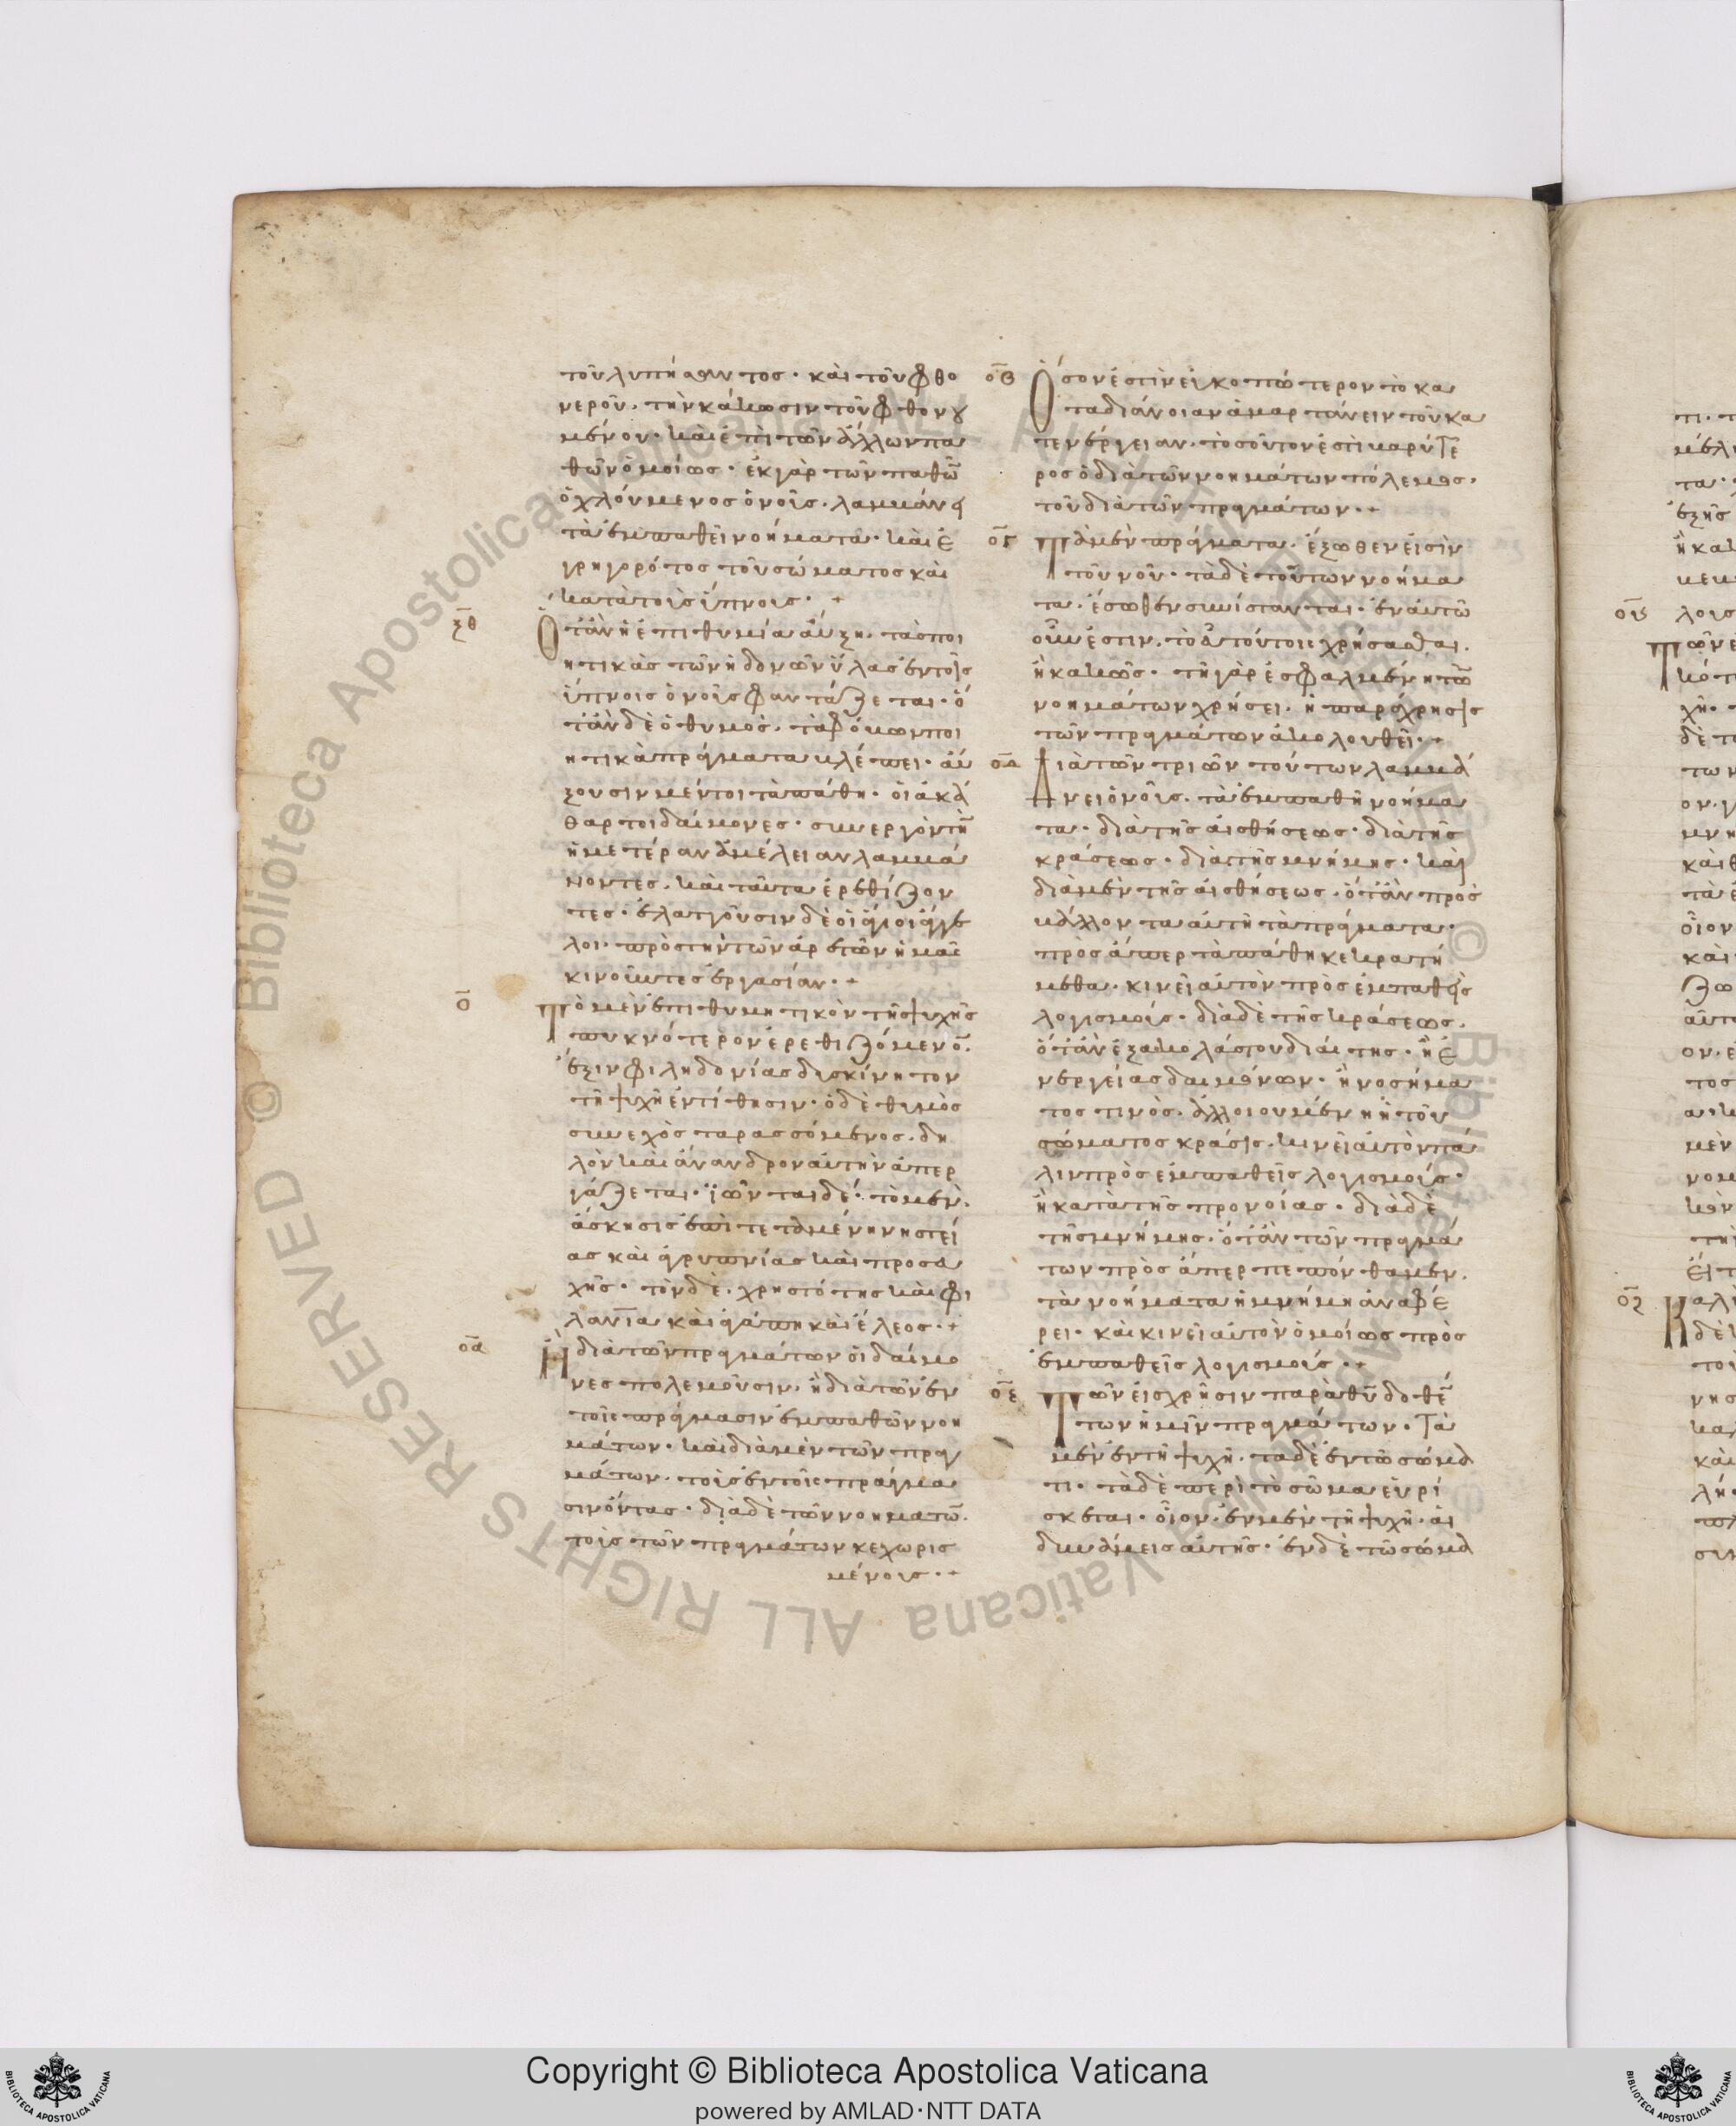 τοῦ λυπήσαντος· καὶ τοῦ φθο
νεροῦ, τὴν κάκωσιν τοῦ φθονου
μένου· καὶ ἐπὶ τῶν ἄλλων πα
θῶν ὁμοίως· ἐκ γὰρ τῶν παθῶ
ὀχλούμενος ὁ νοῦς, λαμβάνει
τὰ ἐμπαθεῖ νοήματα· καὶ ἐ
γρηγορότος τοῦ σώματος καὶ
κατὰ τοὺς ὕπνους·+
ξθ
Ὅταν ἡ ἐπιθυμία αὔξη, τὰς ποι
ητικὰς τῶν ἡδονῶν ὕλας ἐν τοῖς
ὕπνοις ὁ νοῦς φαντάζεται· ὅ
ταν δὲ ὁ θυμὸς, τὰ φόβων ποι
ητικὰ πράγματα βλέπει· αὔ
ξουσιν μέντοι τὰ πάθη, οἱ ἀκά
θαρτοι δαίμονες· συνεργὸν τὴ
ἡμετέραν ἀμέλειαν λαμβά
νοντες, καὶ ταῦτα ἐρεθίζον
τες· ἐλαττοῦσιν δὲ οἱ ἅγιοι ἄγγε
λοι· πρὸς τὴν τῶν ἀρετῶν ἡμᾶς
κινοῦντες ἐργασίαν·+
ο
Τὸ μὲν ἐπιθυμητικὸν τῆς ψυχῆς
πυκνότερον ἐρεθιζόμενο·
ἕξιν φιληδονίας δυσκίνητον
τῇ ψυχῇ ἐντίθησιν· ὁ δὲ θυμὸς
συνεχῶς ταρασσόμενος, δει
λὸν καὶ ἄνανδρον αὐτὴν ἀπερ
γάζεται· ἰῶνται δὲ· τὸ μὲν,
ἄσκησις ἐπιτεταμένη νηστεί
ας καὶ ἀγρυπνίας καὶ προσευ
χῆς· τὸν δὲ, χρηστότης καὶ φι
λανία καὶ ἀγάπη καὶ ἔλεος·+
οα
Ἢ διὰ τῶν πραγμάτων οἱ δαίμο
νες πολεμοῦσιν, ἢ διὰ τῶν ἐν
τοῖς πράγμασιν ἐμπαθῶν νοη
μάτων· καὶ διὰ μὲν τῶν πραγ
μάτων, τοὺς ἐν τοῖς πράγμα
σιν ὄντας· διὰ δὲ τῶν νοημάτω,
τοὺς τῶν πραγμάτων κεχωρισ
μένους·+
οβ
Ὅσον ἐστὶν εὐκοπώτερον τὸ κα
τα διάνοιαν ἁμαρτάνειν τοῦ κα
τ ενέργειαν, τοσοῦτον ἐστὶ βαρύτε
ρος ὁ διὰ τῶν νοημάτων πόλεμος,
τοῦ διὰ τῶν πραγμάτων·+
ογ
Τὰ μὲν πράγματα, ἔξωθεν εἰσὶν
τοῦ νοῦ· τὰ δὲ τούτων νοήμα
τα, ἔσωθεν συνίστανται· ἐν αὐτῶ
οὖν ἐστιν, τὸ εὖ τούτοις χρήσασθαι,
ἢ κακῶς· τῇ γὰρ ἐσφαλμένῃ τῶ
νοημάτων χρήσει, ἡ παράχρησις
τῶν πραγμάτων ἀκολουθεῖ·+
οδ
Διὰ τῶν τριῶν τούτων λαμβά
νει ὁ νοῦς, τὰ ἐμπαθῆ νοήμα
τα· διὰ τῆς αἰσθήσεως· διὰ τῆς
κράσεως· διὰ τῆς μνήμης· καὶ
διὰ μὲν τῆς αἰσθήσεως, ὅταν προσ
βάλλονται αὐτῇ τὰ πράγματα·
πρὸς ἅπερ τὰ πάθη κεκρατή
μεθα, κινεῖ αὐτὸν πρὸς ἐμπαθεῖς
λογισμούς· διὰ δὲ τῆς κράσεως,
ὅταν ἐξ ἀκολάστου διαίτης· ἢ ἐ
νεργείας δαιμόνων· ἢ νοσήμα
τος τινὸς, ἀλλοιουμένη ἡ τοῦ
σώματος κράσις, κινεῖ αὐτὸν πά
λιν πρὸς ἐμπαθεῖς λογισμούς·
ἢ κατὰ τῆς προνοίας· διὰ δὲ
τῆς μνήμης, ὅταν τῶν πραγμά
των πρὸς ἅπερ πεπόνθαμεν,
τὰ νοήματα ἡ μνήμη ἀναφέ
ρει· καὶ κινεῖ αὐτὸν ὁμοίως πρὸς
ἐμπαθεῖς λογισμούς·+
οε
Τῶν εἰς χρῆσιν παρὰ θυ δοθέ
των ἡμῖν πραγμάτων· τὰ
μὲν ἐν τῇ ψυχῇ, τὰ δὲ ἐν τῶ σώμα
τι· τὰ δὲ περὶ τὸ σῶμα εὑρί
σκεται· οἷον, ἐν μὲν τῇ ψυχῇ, αἱ
δυνάμεις αὐτῆς· ἐν δὲ τῶ σώμα
Copyright © Biblioteca Apostolica Vaticana
powered by AMLAD·NTT DATA